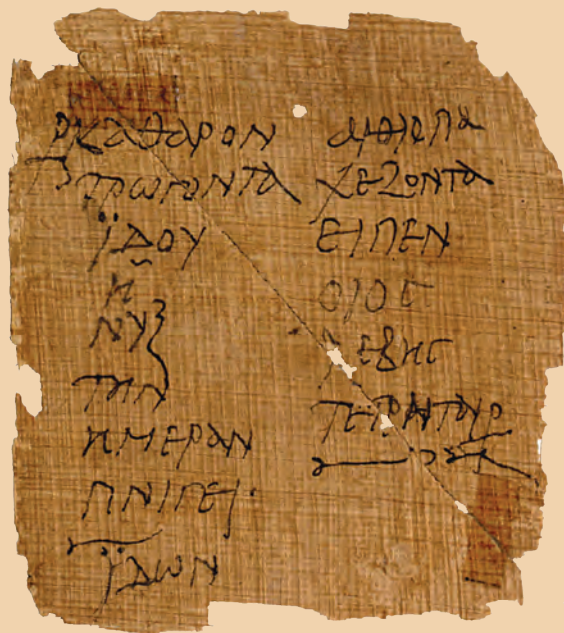 ΚΑΘΑΡΟΝ
ΤΡΩΓΟΝΤΑ
ΪΔΟΥ
Η
ΝΥΞ
ΤΗΝ
ΗΜΕΡΑΝ
ΠΝΙΓΕΙ
ΪΔΩΝ
ΑΙΘΙΟΠΑ
ΧΕΖΟΝΤΑ
ΕΙΠΕΝ
ΟΙΟϹ
ΛΕΒΗϹ